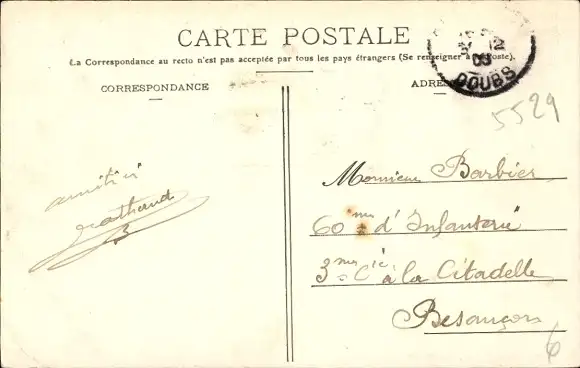 CARTE POSTALE
(La Correspondance au recto n'est pas acceptée par tous les pays étrangers (Se renseigner à la Poste).
CORRESPONDANCE
ADRESSE
DOUBS
5529
amitiés
Monsieur Barbier
60ème d'Infanterie
3ème Cie à la Citadelle
Besançon
6